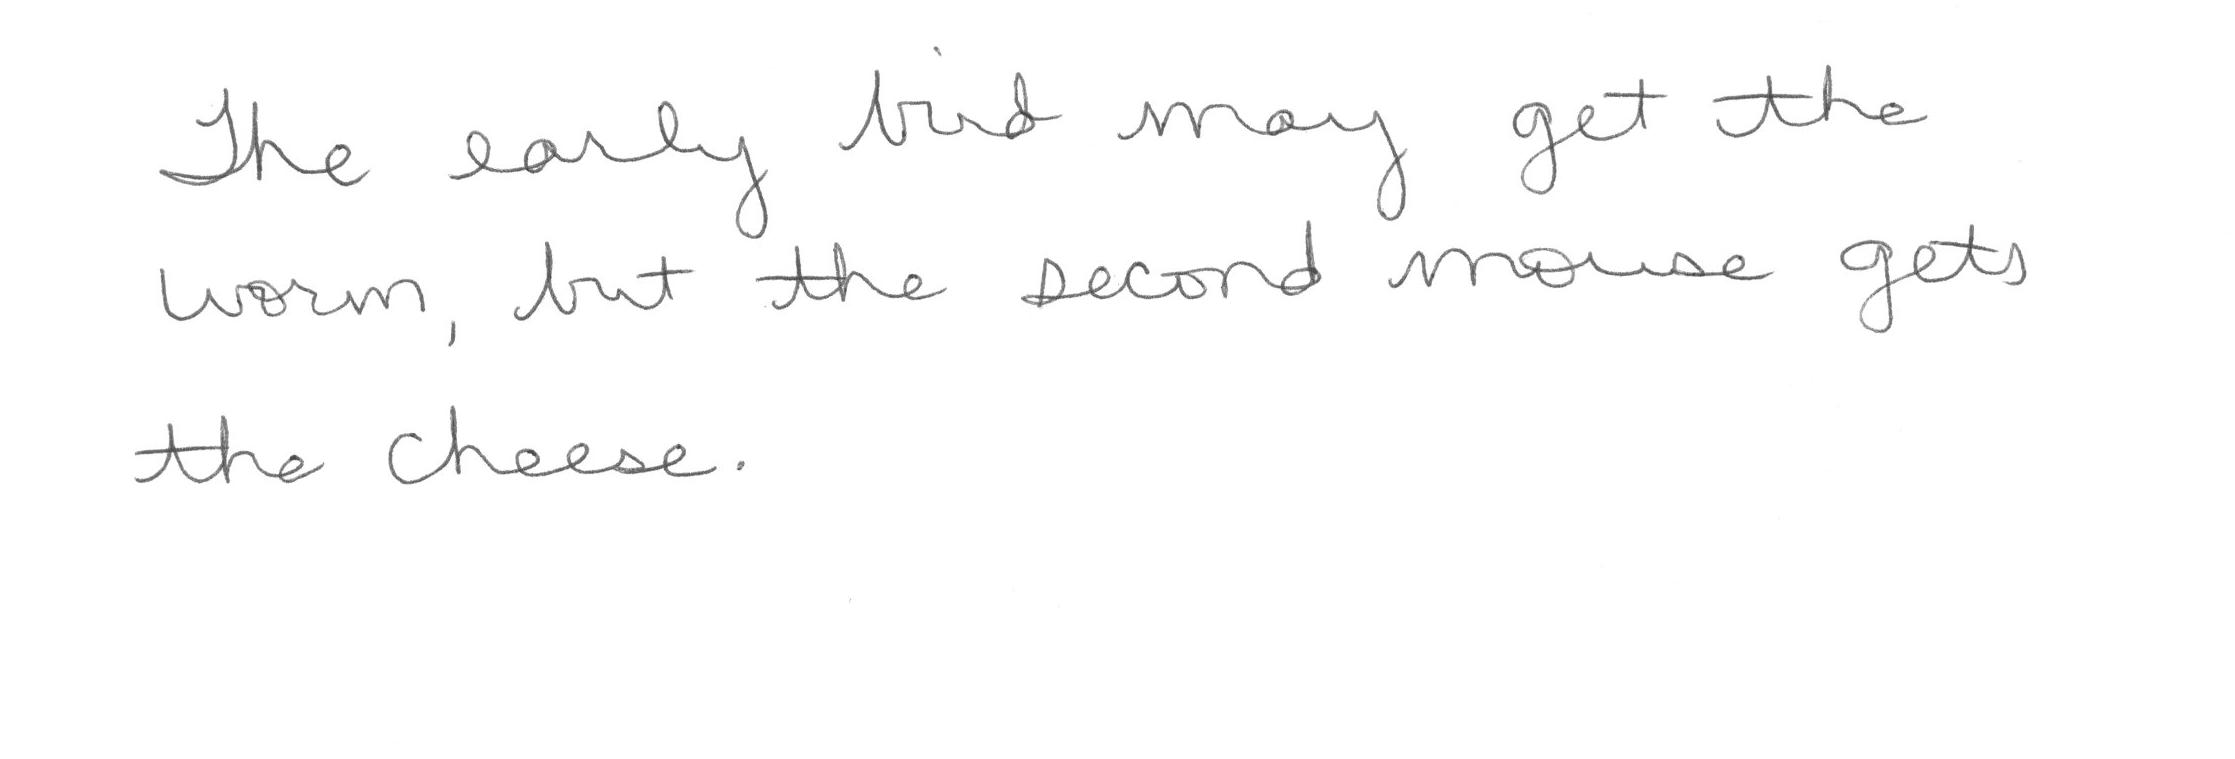 The early bird may get the
worm, but the second mouse gets
the cheese.